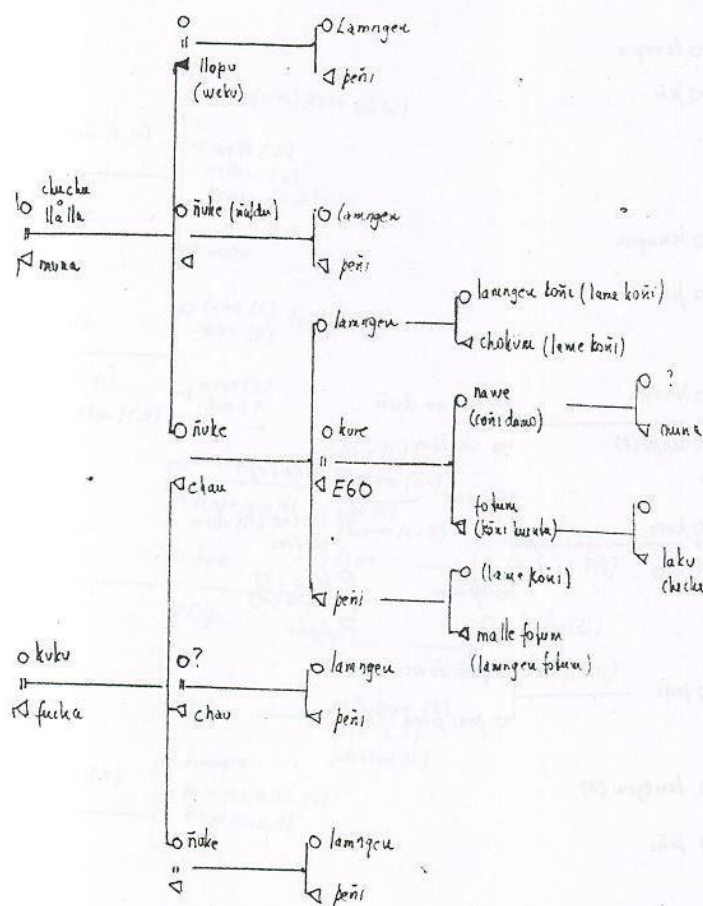 Lamngen
llopu
(weku)
peñi
chucha
llalla
muna
ñuke (ñuldu)
lamngen
peñi
lamngen
lamngen koñi (lame koñi)
chokum (lame koñi)
ñuke
kure
nawe
(coñi damo)
?
muna
chau
EGO
fotum
laku
cheche
peñi
(lame koñi)
malle fotum
(lamngen fotum)
kuku
fucha
?
chau
lamngen
peñi
ñuke
lamngen
peñi